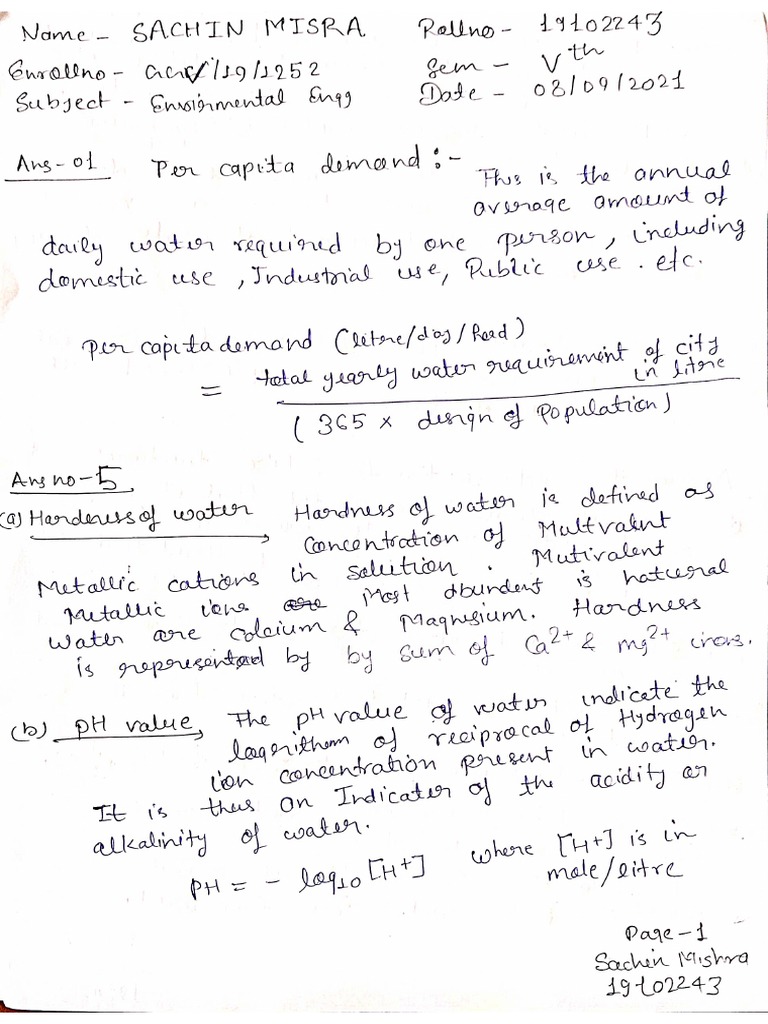 Name - SACHIN MISRA Rollno - 19102243
Enrollno - /19/1252 Sem - Vth
Subject - Envoirnmental Engg Date - 08/09/2021
Ans-01 Per capita demand :- This is the annual
average amount of
daily water required by one person, including
domestic use, Industrial use, Public use. etc.
Per capita demand (litere/day/head)
= total yearly water requirement of city
in litre
(365 x design of Population)
Ans no-5
(a) Harderess of water Hardness of water is defined as
Concentration of Multvalent
Metallic cations in solution. Mutivalent
Metallic ions are Most abundent is natural
water are calcium & Magnesium. Hardness
is represented by by sum of Ca2+ & mg2+ irons.
(b) pH value The pH value of water indicate the
logarithem of reciprocal of Hydrogen
ion concentration present in water.
It is thus an Indicater of the acidity or
alkalinity of water.
PH = - log10 [H+] where [H+] is in
mole/litre
Page-1
Sachin Mishra
19102243